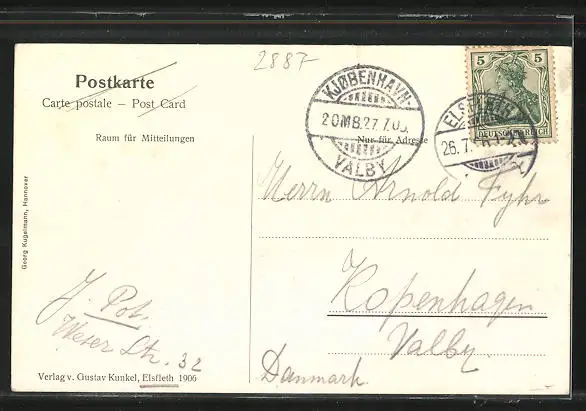 2887
Postkarte
Carte postale – Post Card
Raum für Mitteilungen
Nur für Adresse
KJØBENHAVN-
20MB.27.7.0
VALBY
5 5
DEUTSCHES REICH
ELSFLETH
26.7.
Herrn Arnold
Kopenhagen
Valby.
Danmark
J. Pot.
Weser Str. 32
Georg Kugelmann, Hannover
Verlag v. Gustav Kunkel, Elsfleth 1906